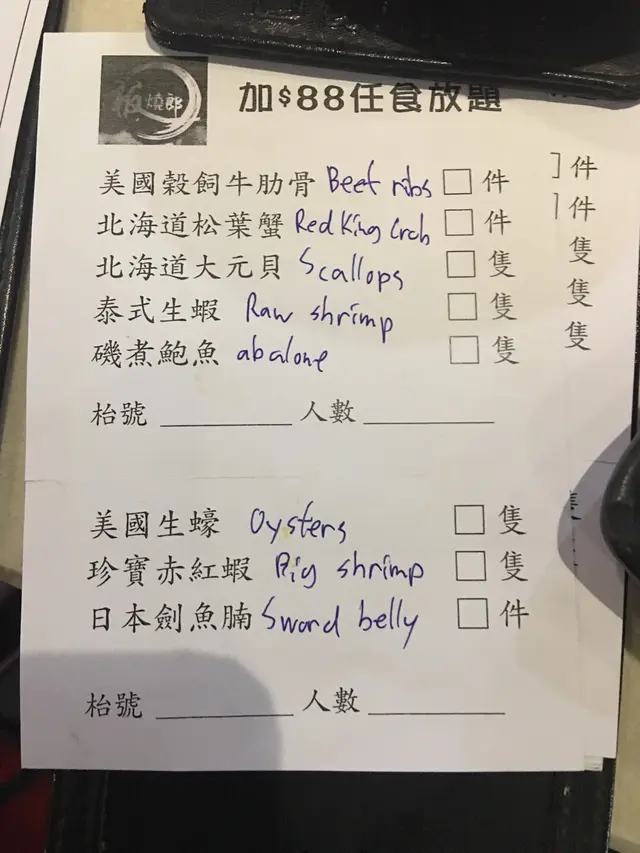 燒郎
加$88任食放題
美國穀飼牛肋骨 Beef ribs □ 件
北海道松葉蟹 Red King Crab □ 件
北海道大元貝 Scallops □ 隻
泰式生蝦 Raw shrimp □ 隻
磯煮鮑魚 abalone □ 隻
枱號 ________ 人數 ________
美國生蠔 Oysters □ 隻
珍寶赤紅蝦 Big shrimp □ 隻
日本劍魚腩 Sword belly □ 件
枱號 ________ 人數 ________
件
件
隻
隻
隻